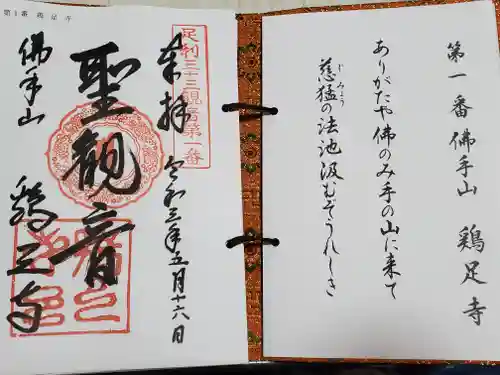 第一番 佛手山 鶏足寺
ありがたや 佛のみ手の山に来て
慈猛の法池汲むぞうれしき
じみょう
足利三十三観音第一番
奉拝 令和三年五月十六日
聖観音
佛手山
鶏足寺
第1番 鶏足寺